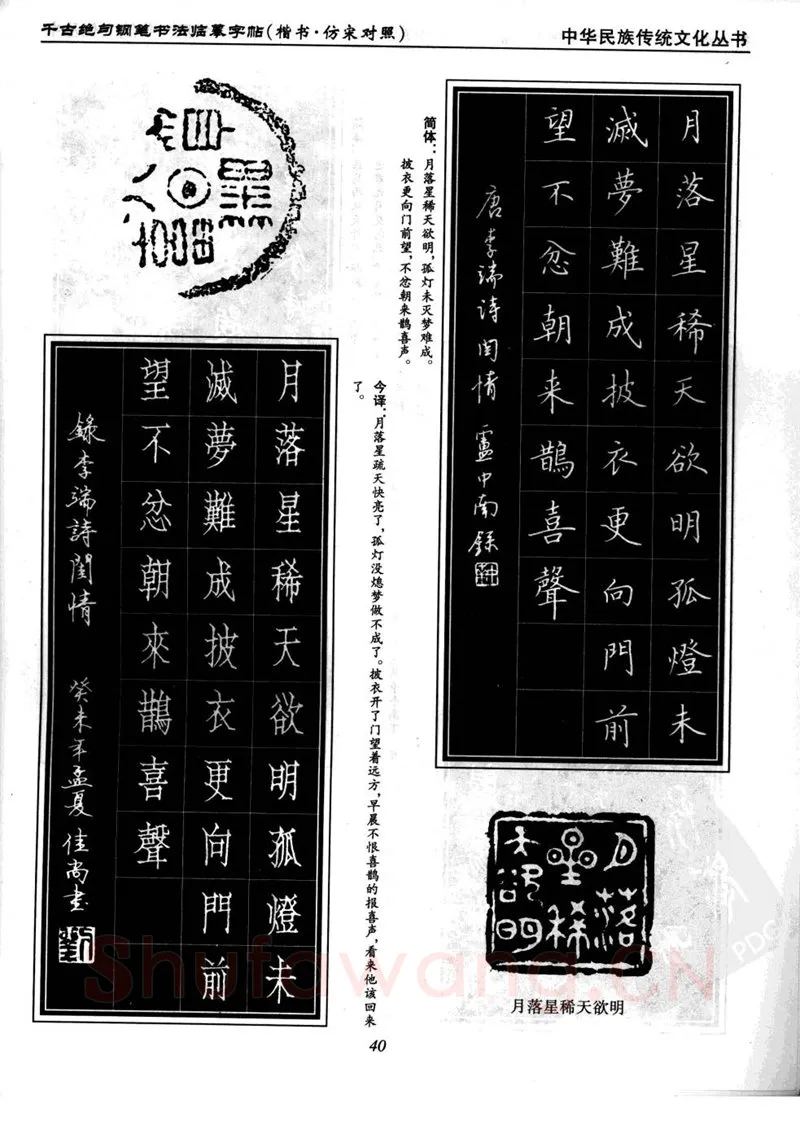 千古绝句钢笔书法临摹字帖(楷书·仿宋对照)
中华民族传统文化丛书
月落星稀天欲明孤燈未
滅夢難成披衣更向門前
望不忿朝来鵲喜聲
唐李端诗闺情 盧中南録
简体:月落星稀天欲明,孤灯未灭梦难成。
披衣更向门前望,不忿朝来鹊喜声。
今译:月落星疏天快亮了,孤灯没熄梦做不成了。披衣开了门望着远方,早晨不恨喜鹊的报喜声,看来他该回来
了。
月落星稀天欲明孤燈未
滅夢難成披衣更向門前
望不忿朝來鵲喜聲
錄李端詩閨情 癸未年孟夏佳尚书
月落
星稀
天欲明
月落星稀天欲明
40
Shufawang.CN
PDG